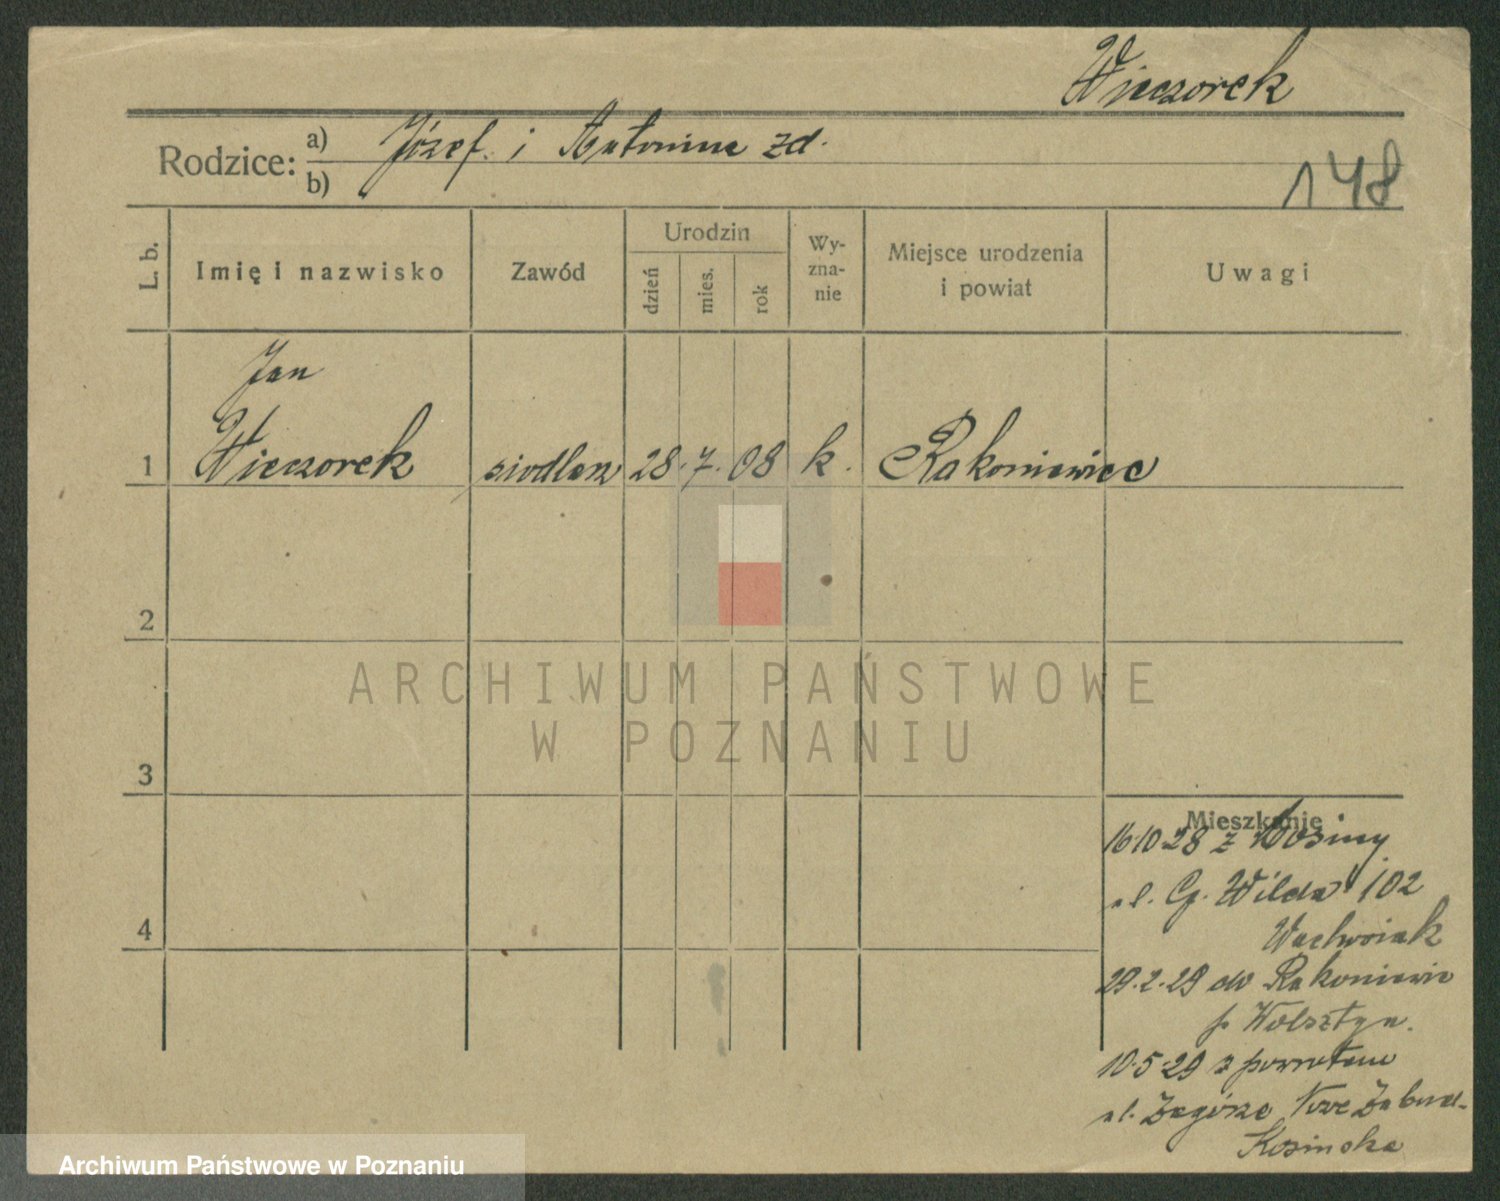 Wieczorek
Rodzice: a) Józef i Antonina zd.
b)
148
L. b.
Imię i nazwisko
Zawód
Urodzin
dzień
mies.
rok
Wy-
zna-
nie
Miejsce urodzenia
i powiat
Uwagi
Jan
1 Wieczorek siodlarz 28. 7. 08 k. Rakoniewice
2
3
4
Mieszkanie
16.10.28 z Mosiny
ul. G. Wilda 102
Wachowiak
29.2.29 do Rakoniewic
p Wolsztyn.
10.5.29 z powrotem
ul. Zagórze Nowe Zabud-
Kosinska
ARCHIWUM PAŃSTWOWE
W POZNANIU
Archiwum Państwowe w Poznaniu